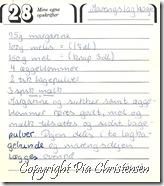 28 Mine egne opskrifter
Marengslagkage
125g margarine
107g melis = (1¼dl)
150g mel = (knap 3dl)
4 æggeblommer
2 tsk bagepulver
3 spsk mælk
Margarine og sukker samt ægge
blommer røres godt, mel og
mælk tilsættes og sidst bage
pulver. Dejen deles i to lagka
gebunde og marengsdejen
lægges ovenpå
Copyright Pia Christensen